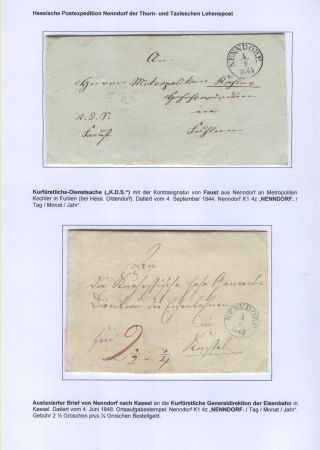 Hessische Postexpedition Nenndorf der Thurn- und Taxisschen Lehenspost
NENNDORF.
4
9
1844
An
Herrn Metropolitan Kochler
Hochehrwürden
in
K. D. S.
Faust
Fuhlen
Kurfürstliche-Dienstsache („K.D.S.“) mit der Kontrasignatur von Faust aus Nenndorf an Metropoliten
Kochler in Fuhlen (bei Hess. Oldendorf). Datiert vom 4. September 1844. Nenndorf K1 4z „NENNDORF. /
Tag / Monat / Jahr“.
An
die Kurhessische hohe General-
Direktion der Eisenbahnen
in
Kassel
NENNDORF.
4
6
1848
frei
2 1/2 - 1/4
Austaxierter Brief von Nenndorf nach Kassel an die Kurfürstliche Generaldirektion der Eisenbahn in
Kassel. Datiert vom 4. Juni 1848. Ortsaufgabestempel: Nenndorf K1 4z „NENNDORF. / Tag / Monat / Jahr“.
Gebühr 2 ½ Groschen plus ¼ Groschen Bestellgeld.